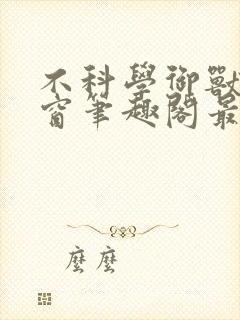 不科學御獸
窗筆趣閣最
麼麼